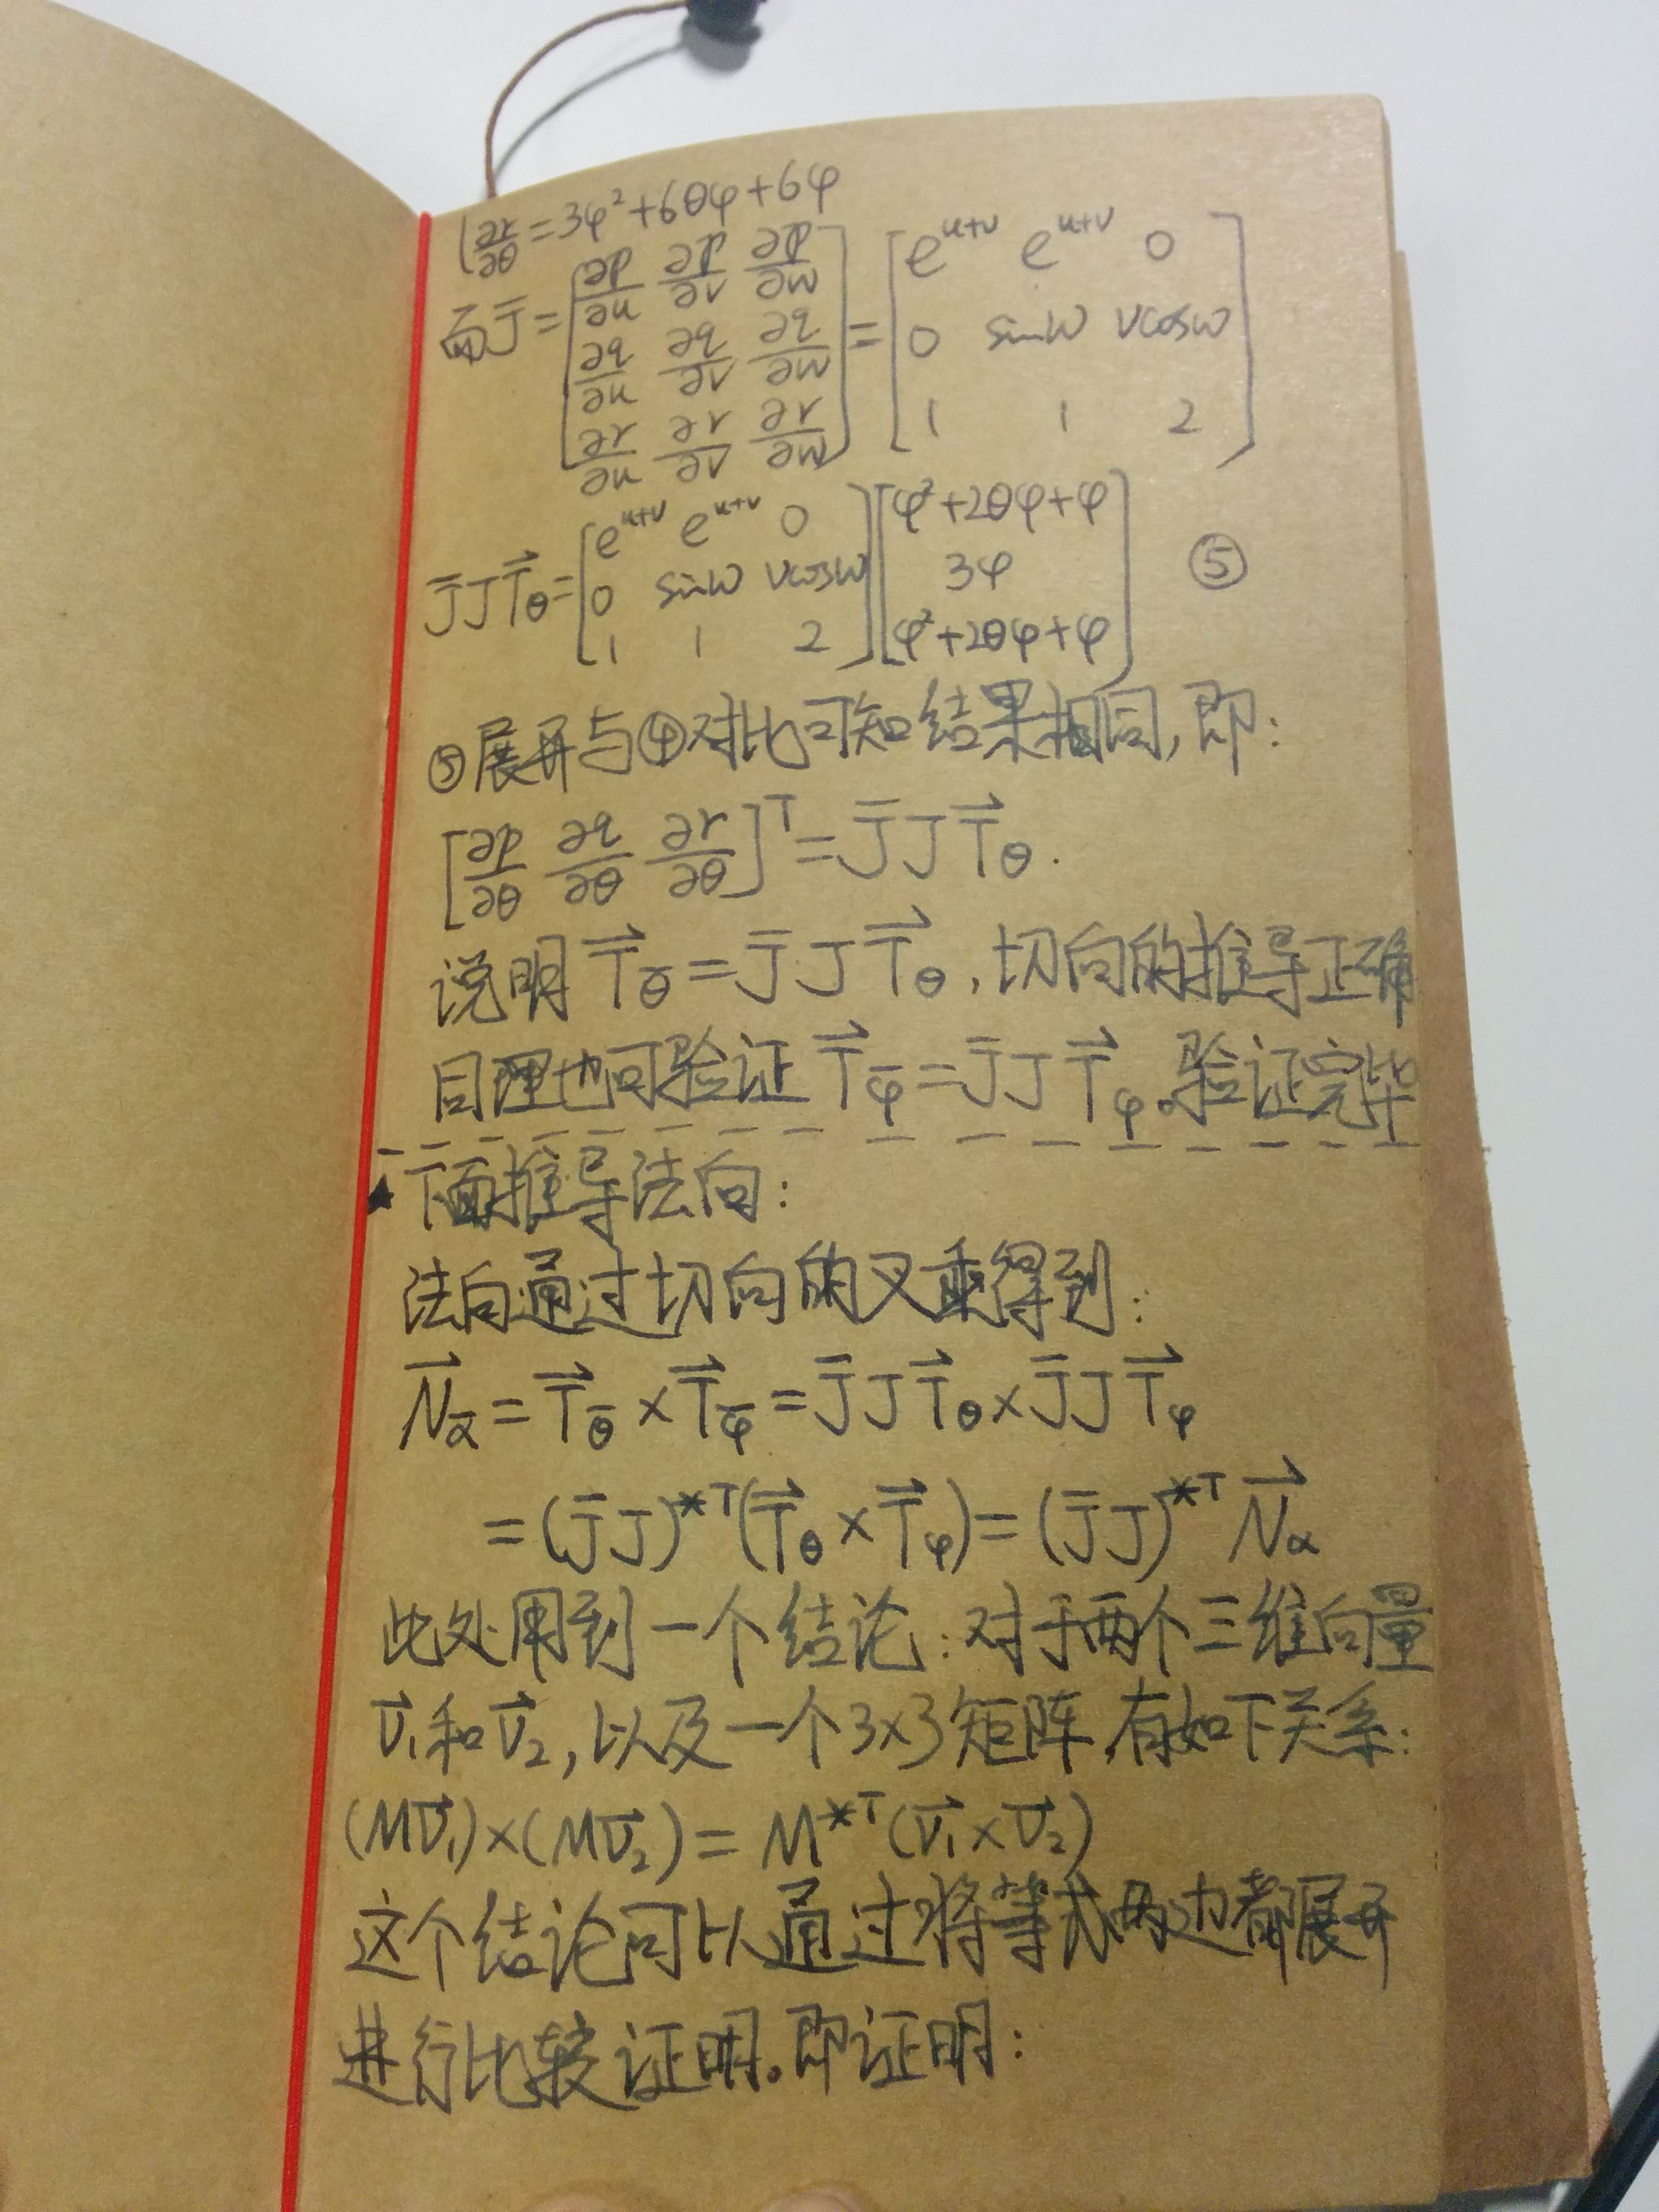 ∂r/∂θ = 3φ² + 6θφ + 6φ
而J̄ = [∂p/∂u ∂p/∂v ∂p/∂w; ∂q/∂u ∂q/∂v ∂q/∂w; ∂r/∂u ∂r/∂v ∂r/∂w] = [e^{u+v} e^{u+v} 0; 0 sinw vcosw; 1 1 2]
J̄JT⃗_θ = [e^{u+v} e^{u+v} 0; 0 sinw vcosw; 1 1 2][φ²+2θφ+φ; 3φ; φ²+2θφ+φ] ⑤
⑤展开与④对比可知结果相同,即:
[∂p/∂θ ∂q/∂θ ∂r/∂θ]^T = J̄JT⃗_θ.
说明T⃗_θ̄ = J̄JT⃗_θ,切向的推导正确
同理也可验证T⃗_φ̄ = J̄JT⃗_φ。验证完毕
★下面推导法向:
法向通过切向的叉乘得到:
N⃗_ᾱ = T⃗_θ̄ × T⃗_φ̄ = J̄JT⃗_θ × J̄JT⃗_φ
= (J̄J)^{*T}(T⃗_θ × T⃗_φ) = (J̄J)^{*T} N⃗_α
此处用到一个结论:对于两个三维向量
v⃗₁和v⃗₂,以及一个3×3矩阵,有如下关系:
(Mv⃗₁)×(Mv⃗₂) = M^{*T}(v⃗₁×v⃗₂)
这个结论可以通过将等式两边都展开
进行比较证明。即证明: